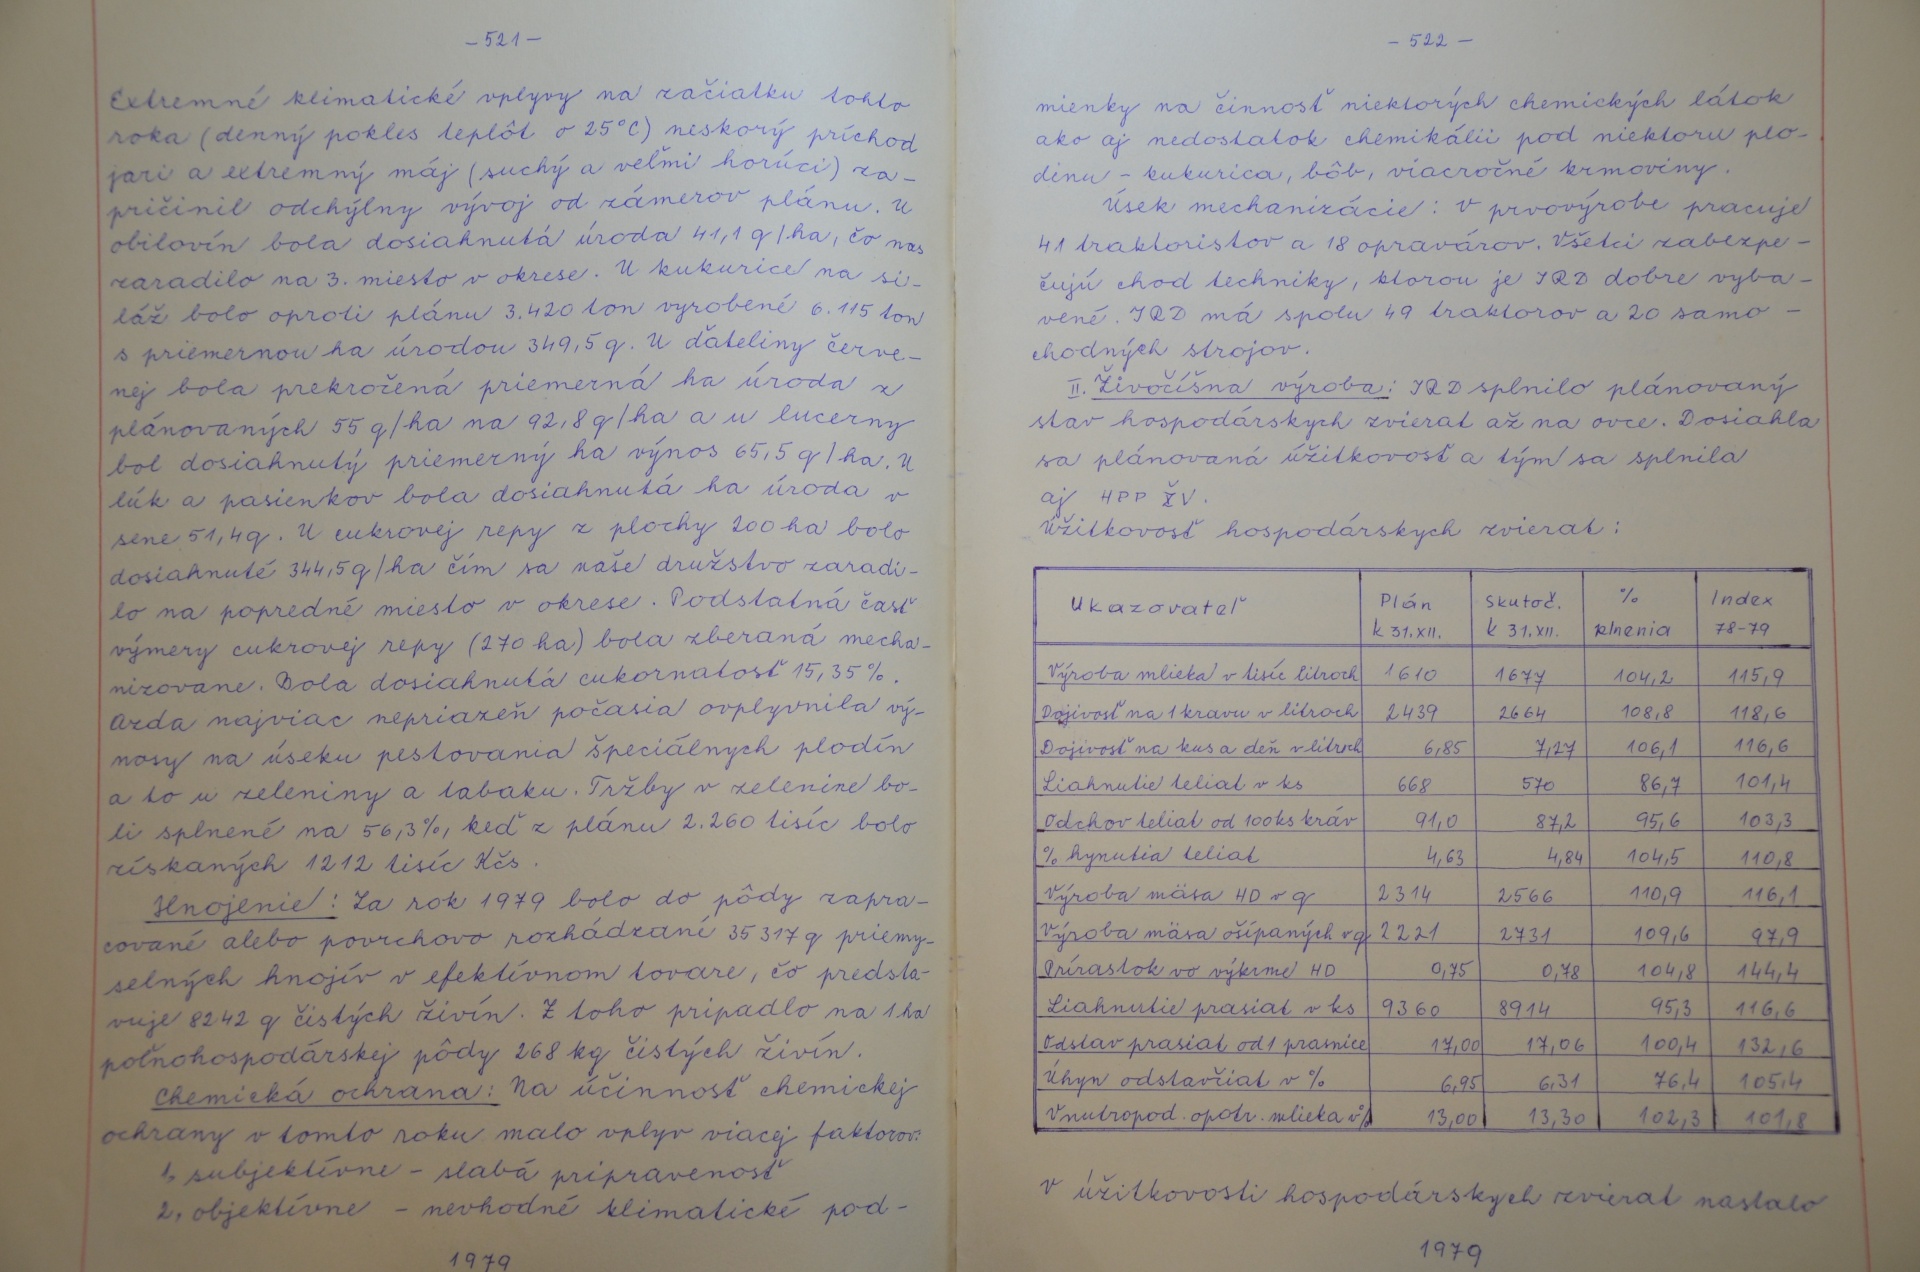 - 521 -
Extremné klimatické vplyvy na začiatku tohto
roka (denný pokles teplôt o 25°C) neskorý príchod
jari a extremný máj (suchý a veľmi horúci) za-
pričinil odchýlny vývoj od zámerov plánu. U
obilovín bola dosiahnutá úroda 41,1 q/ha, čo nas
zaradilo na 3. miesto v okrese. U kukurice na si-
láž bolo oproti plánu 3.420 ton vyrobené 6.115 ton
s priemernou ha úrodou 349,5 q. U ďateliny červe-
nej bola prekročená priemerná ha úroda z
plánovaných 55 q/ha na 92,8 q/ha a u lucerny
bol dosiahnutý priemerný ha výnos 65,5 q/ha. U
lúk a pasienkov bola dosiahnutá ha úroda v
sene 51,4 q. U cukrovej repy z plochy 200 ha bolo
dosiahnuté 344,5 q/ha čím sa naše družstvo zaradi-
lo na popredné miesto v okrese. Podstatná časť
výmery cukrovej repy (270 ha) bola zberaná mecha-
nizovane. Bola dosiahnutá cukornatosť 15,35 %.
Azda najviac nepriazeň počasia ovplyvnila vý-
nosy na úseku pestovania špeciálnych plodín
a to u zeleniny a tabaku. Tržby v zelenine bo-
li splnené na 56,3%, keď z plánu 2.260 tisíc bolo
získaných 1212 tisíc Kčs.
Hnojenie: Za rok 1979 bolo do pôdy zapra-
cované alebo povrchovo rozhádzané 35 317 q priemy-
selných hnojív v efektívnom tovare, čo predsta-
vuje 8242 q čistých živín. Z toho pripadlo na 1 ha
poľnohospodárskej pôdy 268 kg čistých živín.
Chemická ochrana: Na účinnosť chemickej
ochrany v tomto roku malo vplyv viacej faktorov:
1, subjektívne - slabá pripravenosť
2, objektívne - nevhodné klimatické pod-
1979
- 522 -
mienky na činnosť niektorých chemických látok
ako aj nedostatok chemikálii pod niektoru plo-
dinu - kukurica, bôb, viacročné krmoviny.
Úsek mechanizácie: V prvovýrobe pracuje
41 traktoristov a 18 opravárov. Všetci zabezpe-
čujú chod techniky, ktorou je JRD dobre vyba-
vené. JRD má spolu 49 traktorov a 20 samo-
chodných strojov.
II. Živočíšna výroba: JRD splnilo plánovaný
stav hospodárskych zvierat až na ovce. Dosiahla
sa plánovaná úžitkovosť a tým sa splnila
aj HPP ŽV.
Úžitkovosť hospodárskych zvierat:
Ukazovateľ Plán k 31.XII. Skutoč. k 31.XII. % plnenia Index 78-79
Výroba mlieka v tisíc litroch 1610 1677 104,2 115,9
Dojivosť na 1 kravu v litroch 2439 2664 108,8 118,6
Dojivosť na kus a deň v litroch 6,85 7,27 106,1 116,6
Liahnutie teliat v ks 668 570 86,7 101,4
Odchov teliat od 100 ks kráv 91,0 87,2 95,6 103,3
% hynutia teliat 4,63 4,84 104,5 110,8
Výroba mäsa HD v q 2314 2566 110,9 116,1
Výroba mäsa ošípaných v q 2221 2731 109,6 97,9
Prírastok vo výkrme HD 0,75 0,78 104,8 144,4
Liahnutie prasiat v ks 9360 8914 95,3 116,6
Odstav prasiat od 1 prasnice 17,00 17,06 100,4 132,6
Úhyn odstavčiat v % 6,95 6,31 76,4 105,4
Vnutropod. opotr. mlieka v% 13,00 13,30 102,3 101,8
V úžitkovosti hospodárskych zvierat nastalo
1979